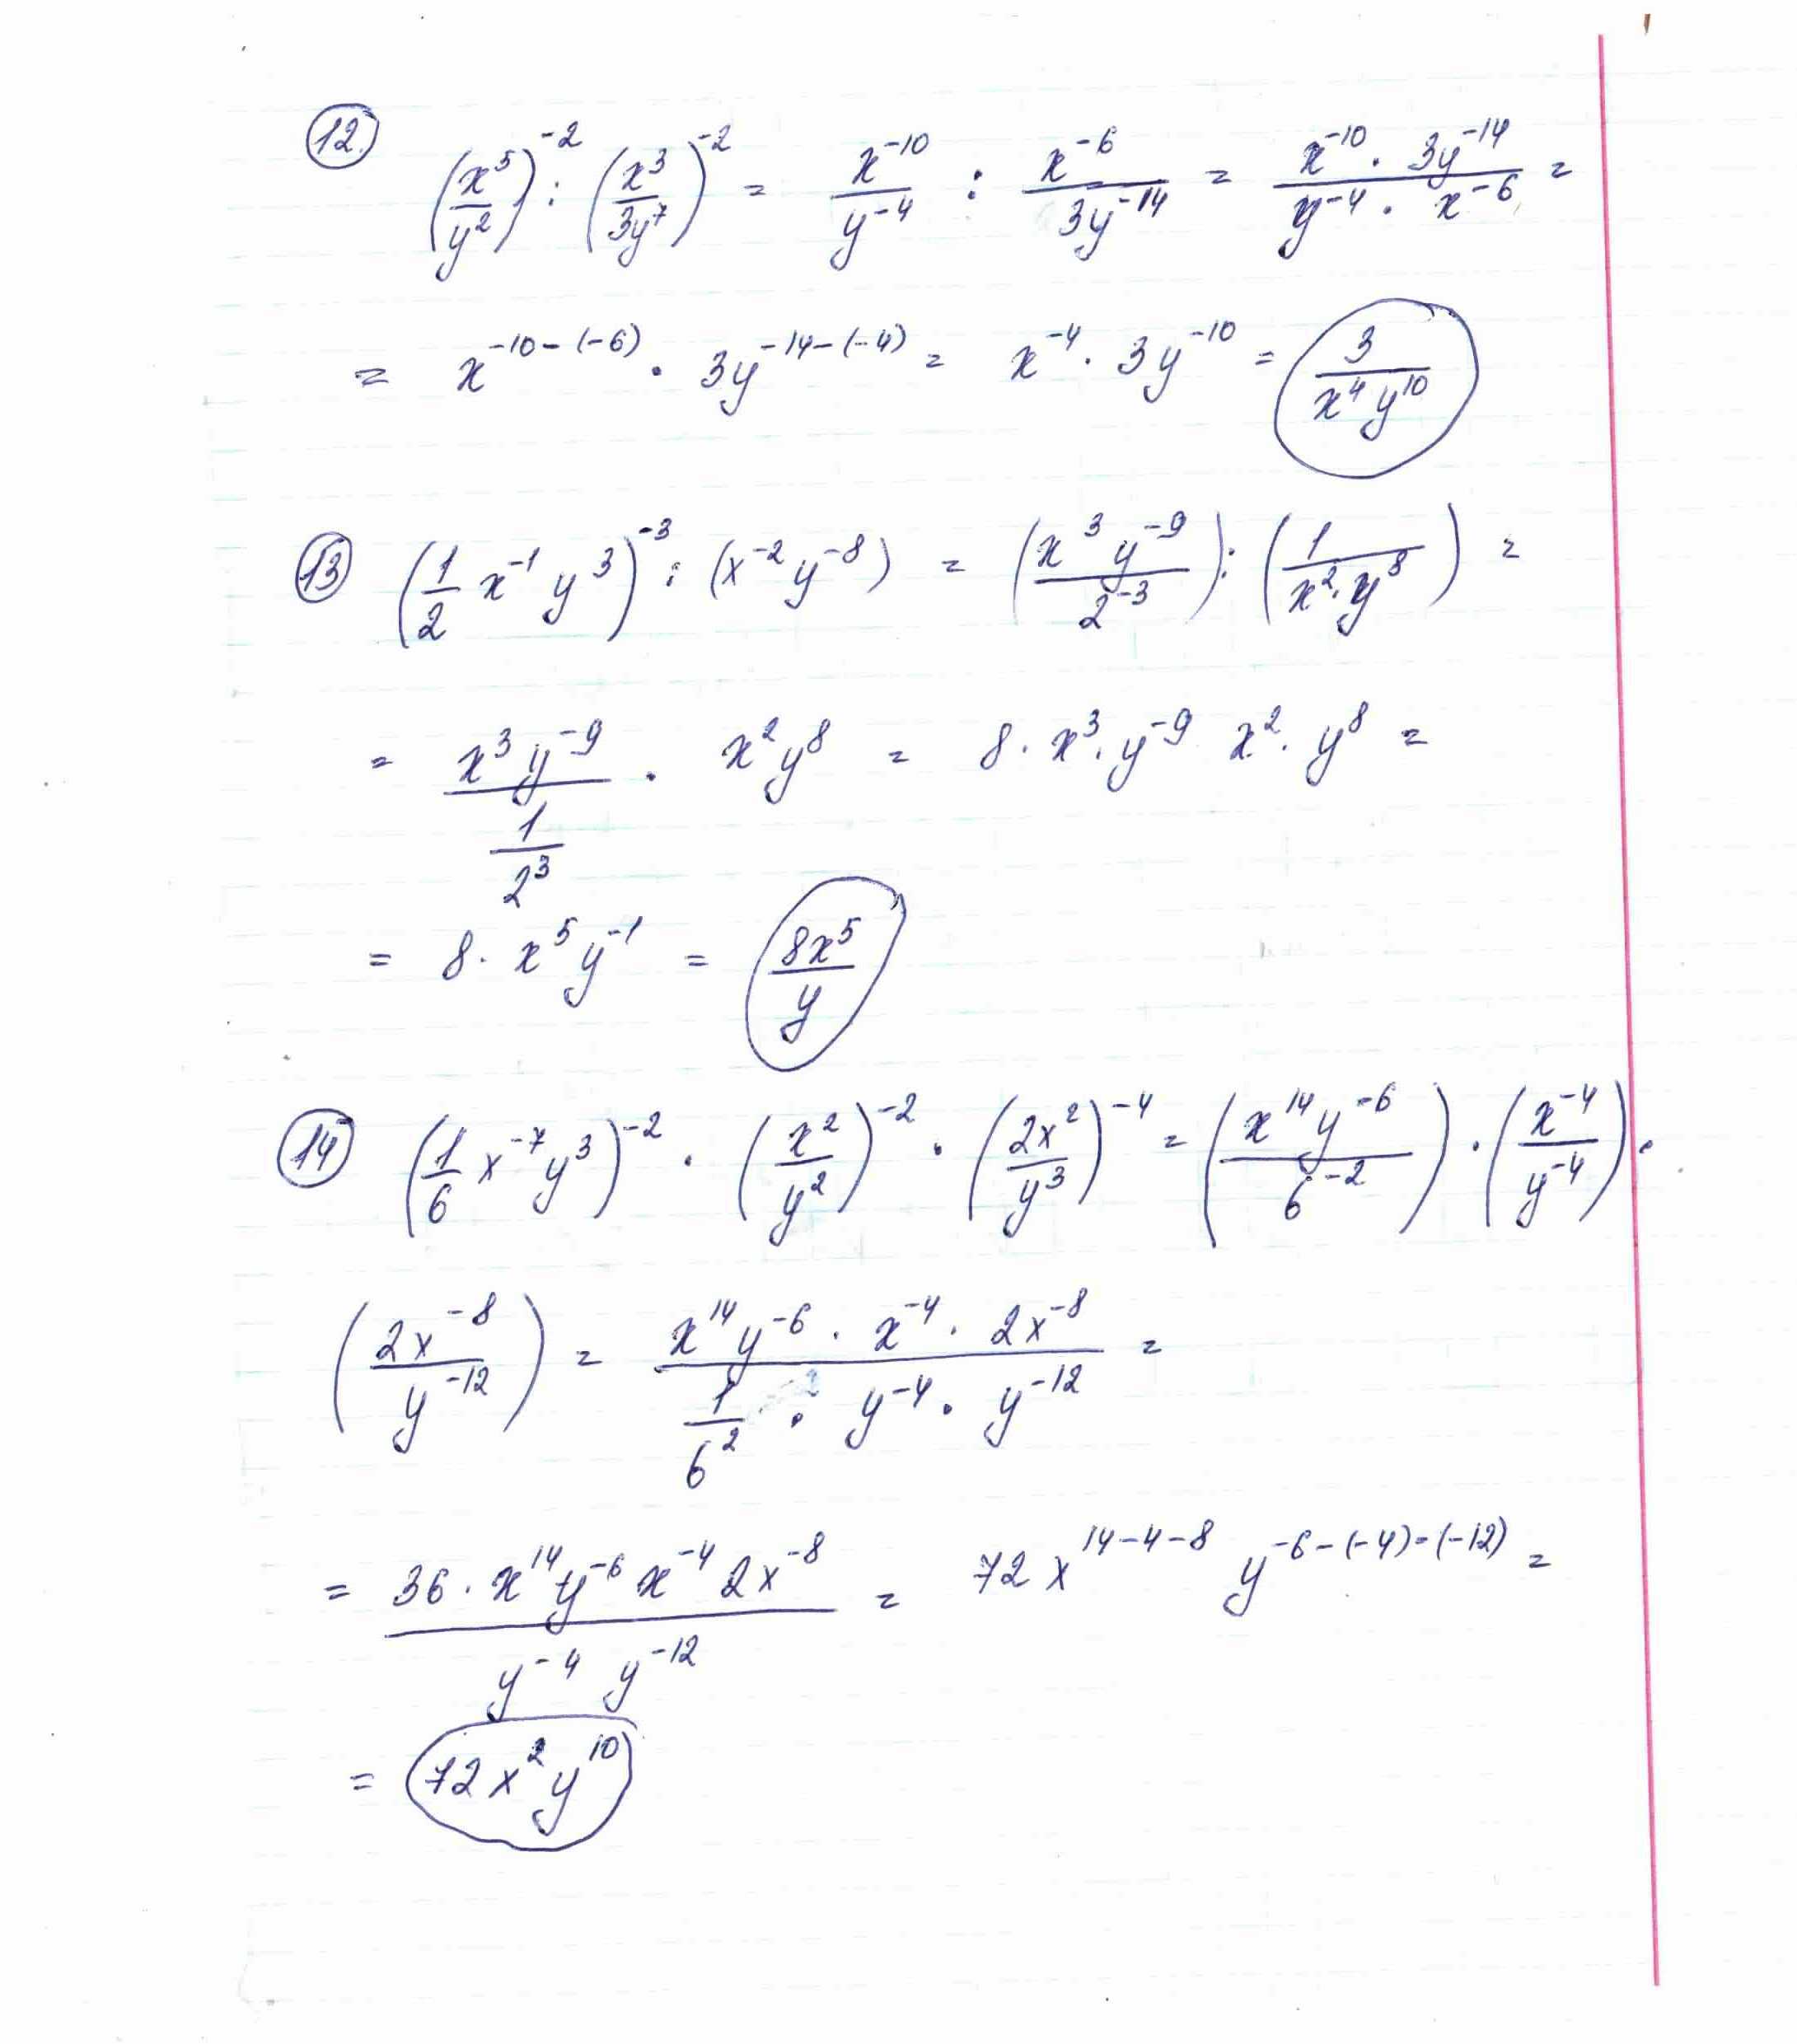 12. (x⁵/y²)⁻² : (x³/3y⁷)⁻² = x⁻¹⁰/y⁻⁴ : x⁻⁶/3y⁻¹⁴ = x⁻¹⁰ · 3y⁻¹⁴/y⁻⁴ · x⁻⁶ =
= x⁻¹⁰⁻⁽⁻⁶⁾ · 3y⁻¹⁴⁻⁽⁻⁴⁾ = x⁻⁴ · 3y⁻¹⁰ = 3/x⁴y¹⁰
13 (1/2 x⁻¹ y³)⁻³ : (x⁻² y⁻⁸) = (x³y⁻⁹/2⁻³) : (1/x² · y⁸) =
= x³y⁻⁹/(1/2³) · x²y⁸ = 8 · x³ · y⁻⁹ x² · y⁸ =
= 8 · x⁵y⁻¹ = 8x⁵/y
14 (1/6 x⁻⁷y³)⁻² · (x²/y²)⁻² · (2x²/y³)⁻⁴ = (x¹⁴y⁻⁶/6⁻²) · (x⁻⁴/y⁻⁴) ·
(2x⁻⁸/y⁻¹²) = x¹⁴y⁻⁶ · x⁻⁴ · 2x⁻⁸/(1/6²) · y⁻⁴ · y⁻¹² =
= 36 · x¹⁴y⁻⁶ x⁻⁴ 2x⁻⁸/y⁻⁴ y⁻¹² = 72x¹⁴⁻⁴⁻⁸ y⁻⁶⁻⁽⁻⁴⁾⁻⁽⁻¹²⁾ =
= 72x²y¹⁰